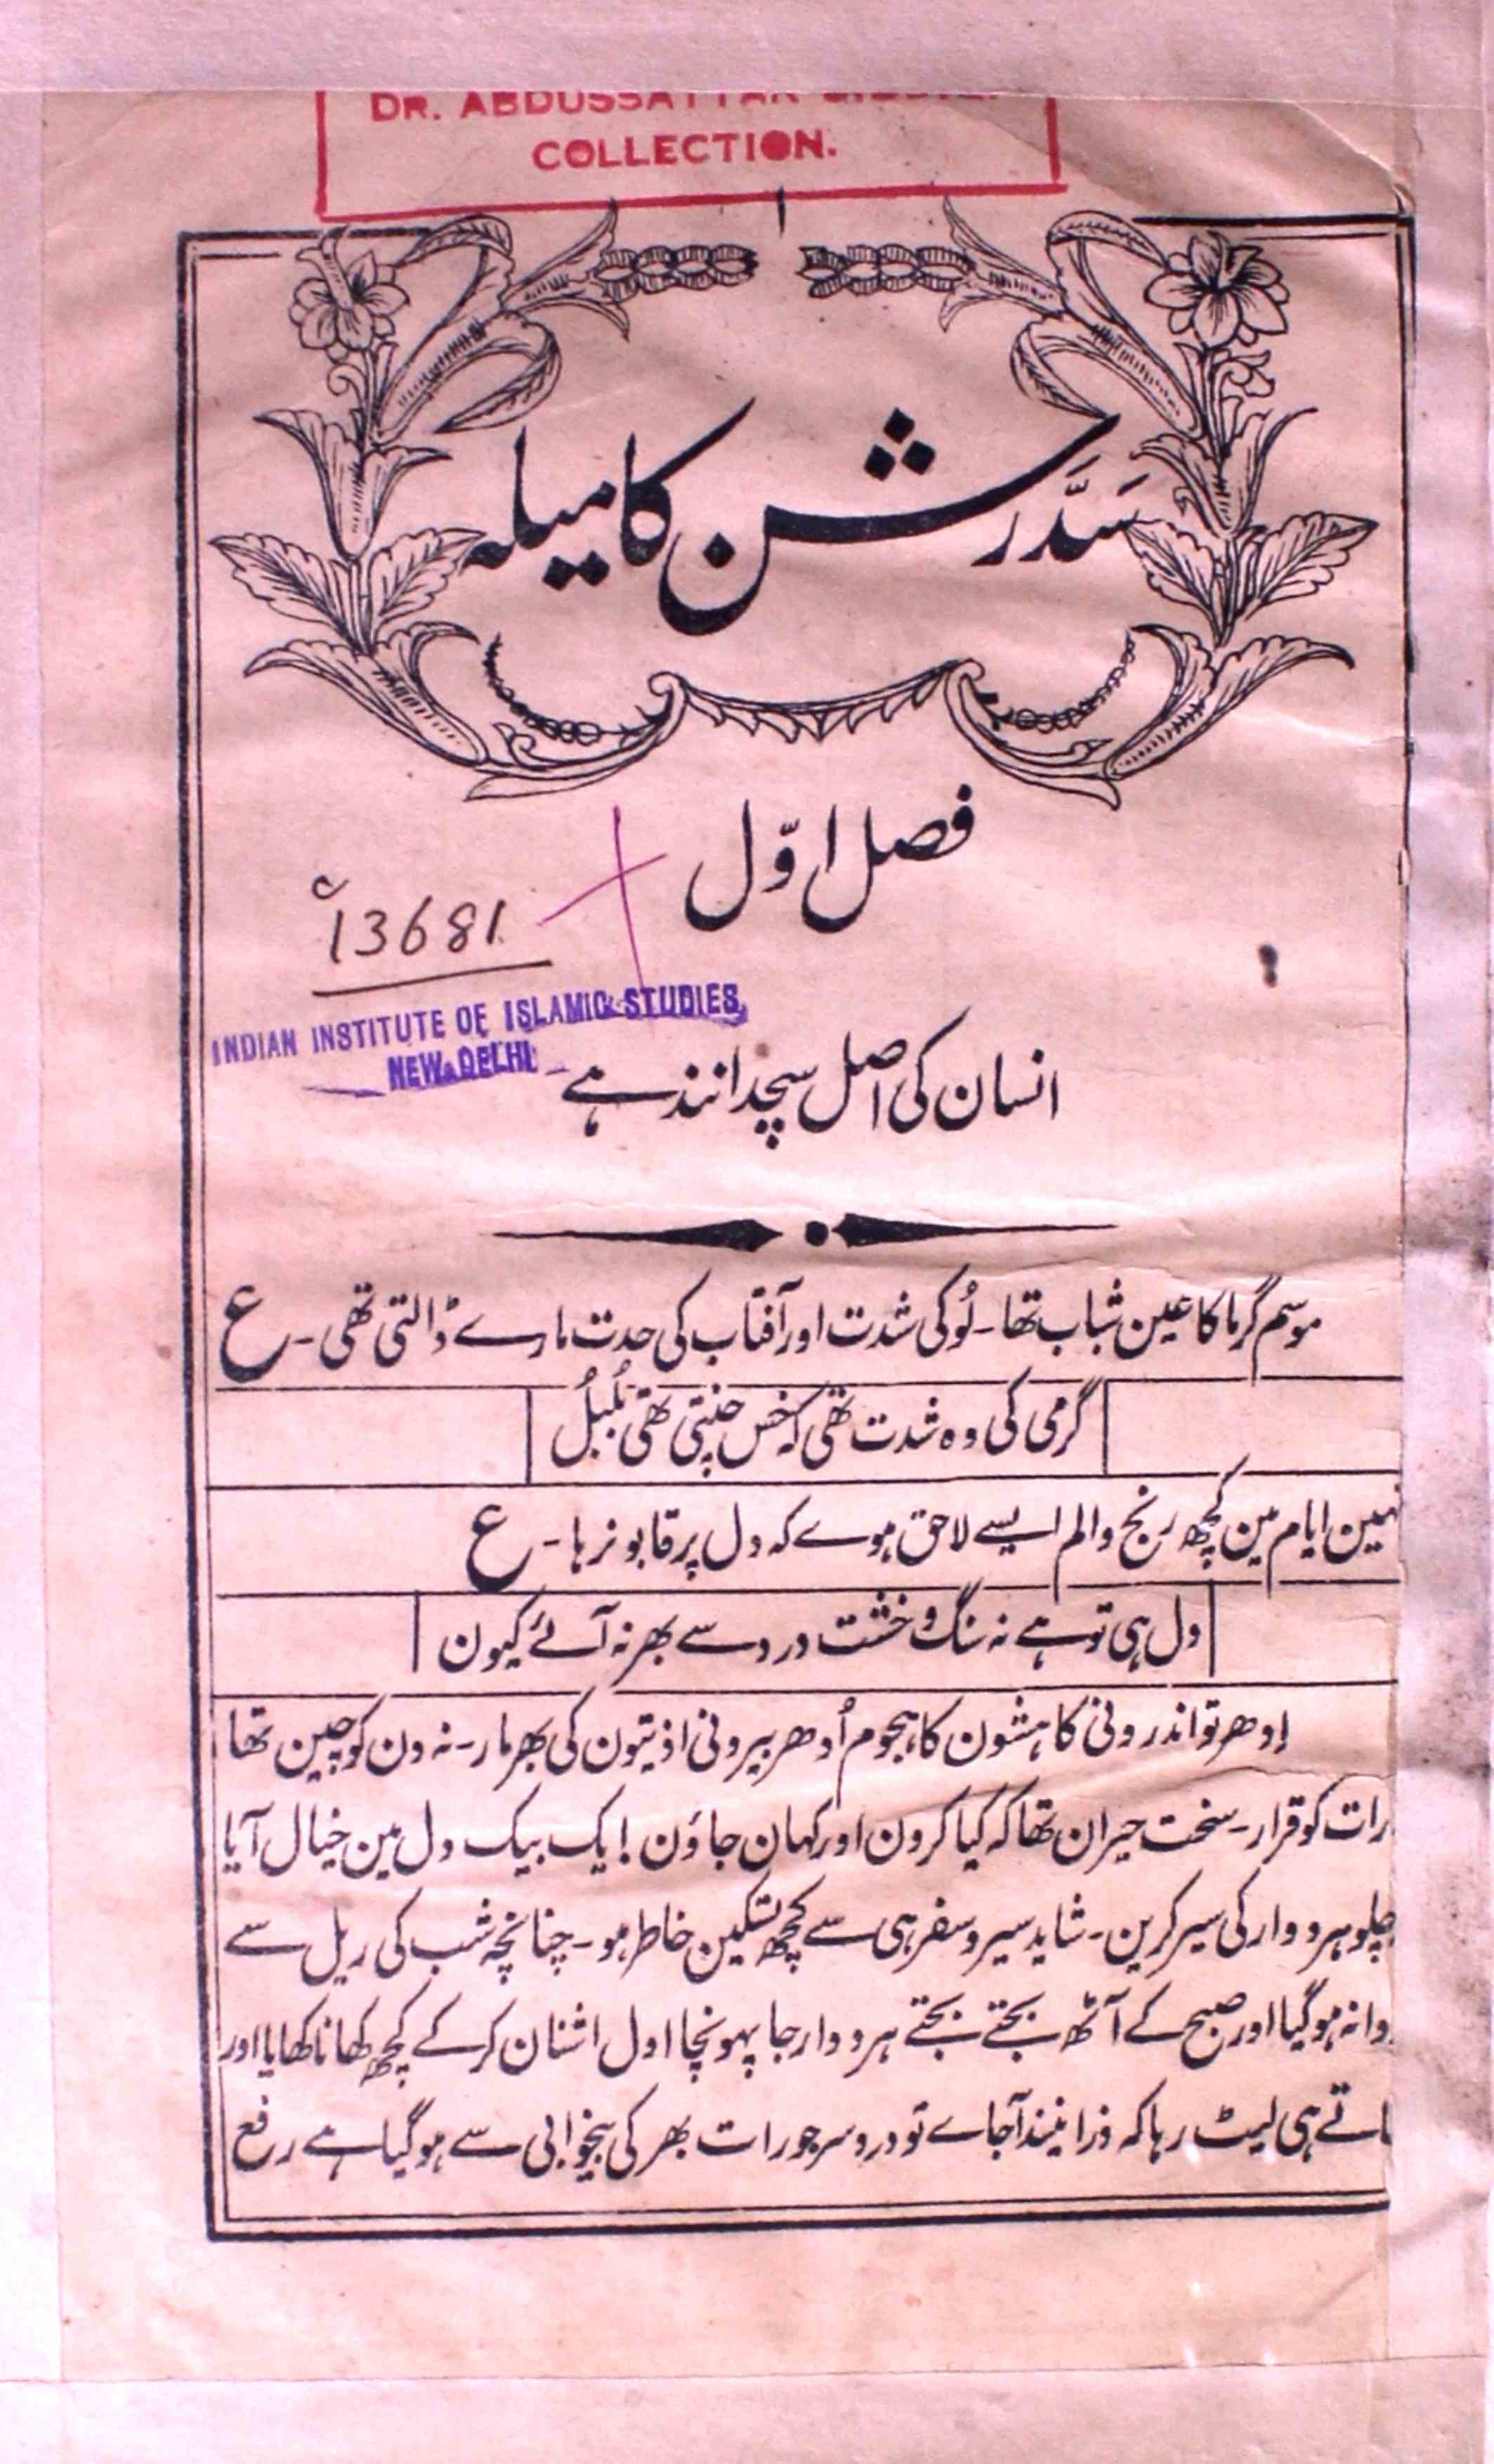 COLLECTION.
۱
سَدَّرشن کا میلہ
فصل اوّل
13681
INDIAN INSTITUTE OF ISLAMIC STUDIES
NEW DELHI
انسان کی اصل سچدانند ہے
موسم گرما کا عین شباب تھا۔ لُو کی شدت اور آفتاب کی حدت مارے ڈالتی تھی۔ ع
گرمی کی وہ شدت تھی کہ خس چنتی تھی بُلبُل
ایام مین کچھ رنج والم ایسے لاحق ہوے کہ دل پر قابو نرہا۔ ع
دل ہی تو ہے نہ سنگ و خشت درد سے بھر نہ آئے کیون
اِدھر تو اندرونی کاہشون کا ہجوم اُدھر بیرونی اذیتون کی بھرمار۔ نہ دن کو چین تھا
رات کو قرار۔ سخت حیران تھا کہ کیا کرون اور کہان جاؤن! یک بیک دل مین خیال آیا
چلو ہردوار کی سیر کرین۔ شاید سیر و سفر ہی سے کچھ تسکین خاطر ہو۔ چنانچہ شب کی ریل سے
وانہ ہو گیا اور صبح کے آٹھ بجتے بجتے ہردوار جا پہونچا اول اشنان کر کے کچھ کھانا کھایا اور
اتے ہی لیٹ رہا کہ ذرا نیند آجاے تو درد سر جو رات بھر کی بیخوابی سے ہو گیا ہے رفع